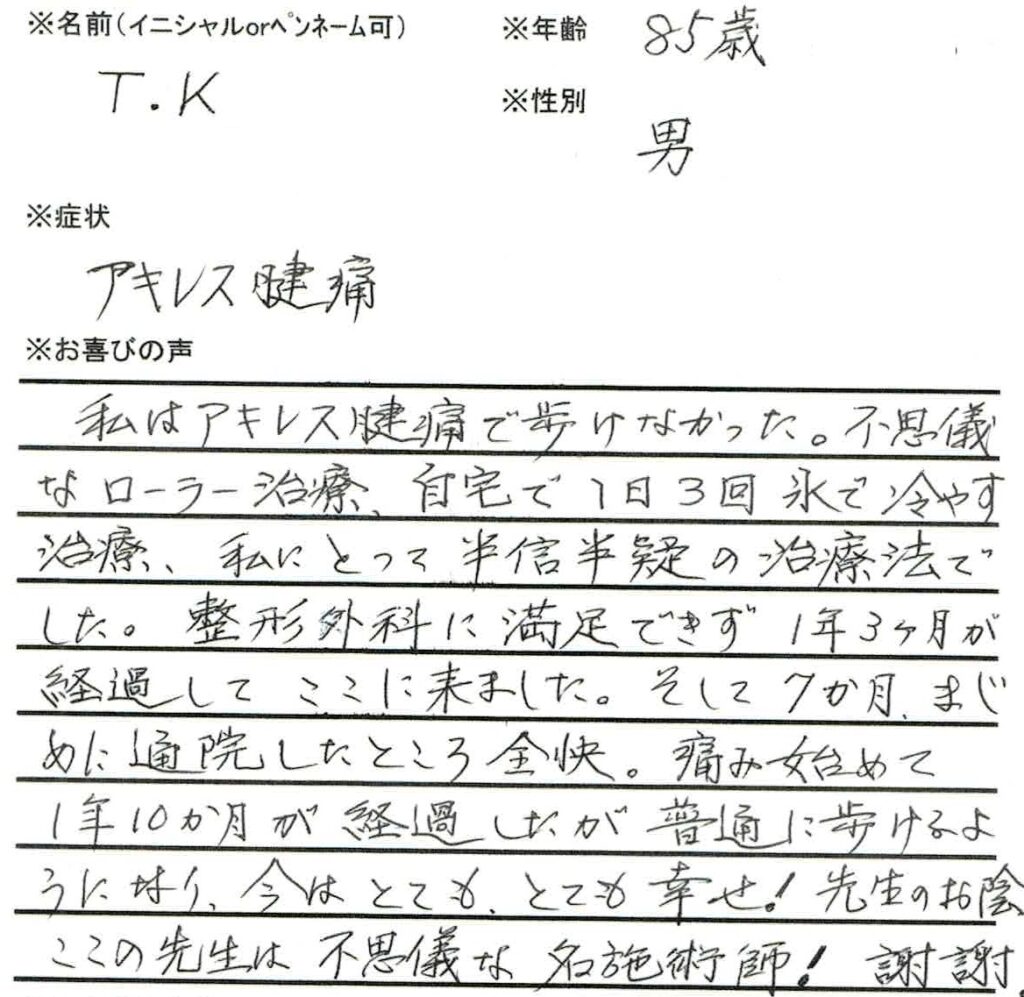 ※名前(イニシャルorペンネーム可)
T.K
※年齢 85歳
※性別
男
※症状
アキレス腱痛
※お喜びの声
私はアキレス腱痛で歩けなかった。不思儀
なローラー治療、自宅で1日3回氷で冷やす
治療、私にとって半信半疑の治療法で
した。整形外科に満足できず1年3ヶ月が
経過してここに来ました。そして7か月、まじ
めに通院したところ全快。痛み始めて
1年10か月が経過したが普通に歩けるよ
うになり、今はとても、とても幸せ!先生のお陰
ここの先生は不思儀な名施術師!謝謝.